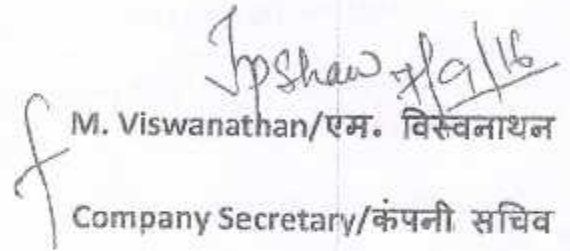 Jpshaw 7/9/16
M. Viswanathan/एम. विस्वनाथन
Company Secretary/कंपनी सचिव